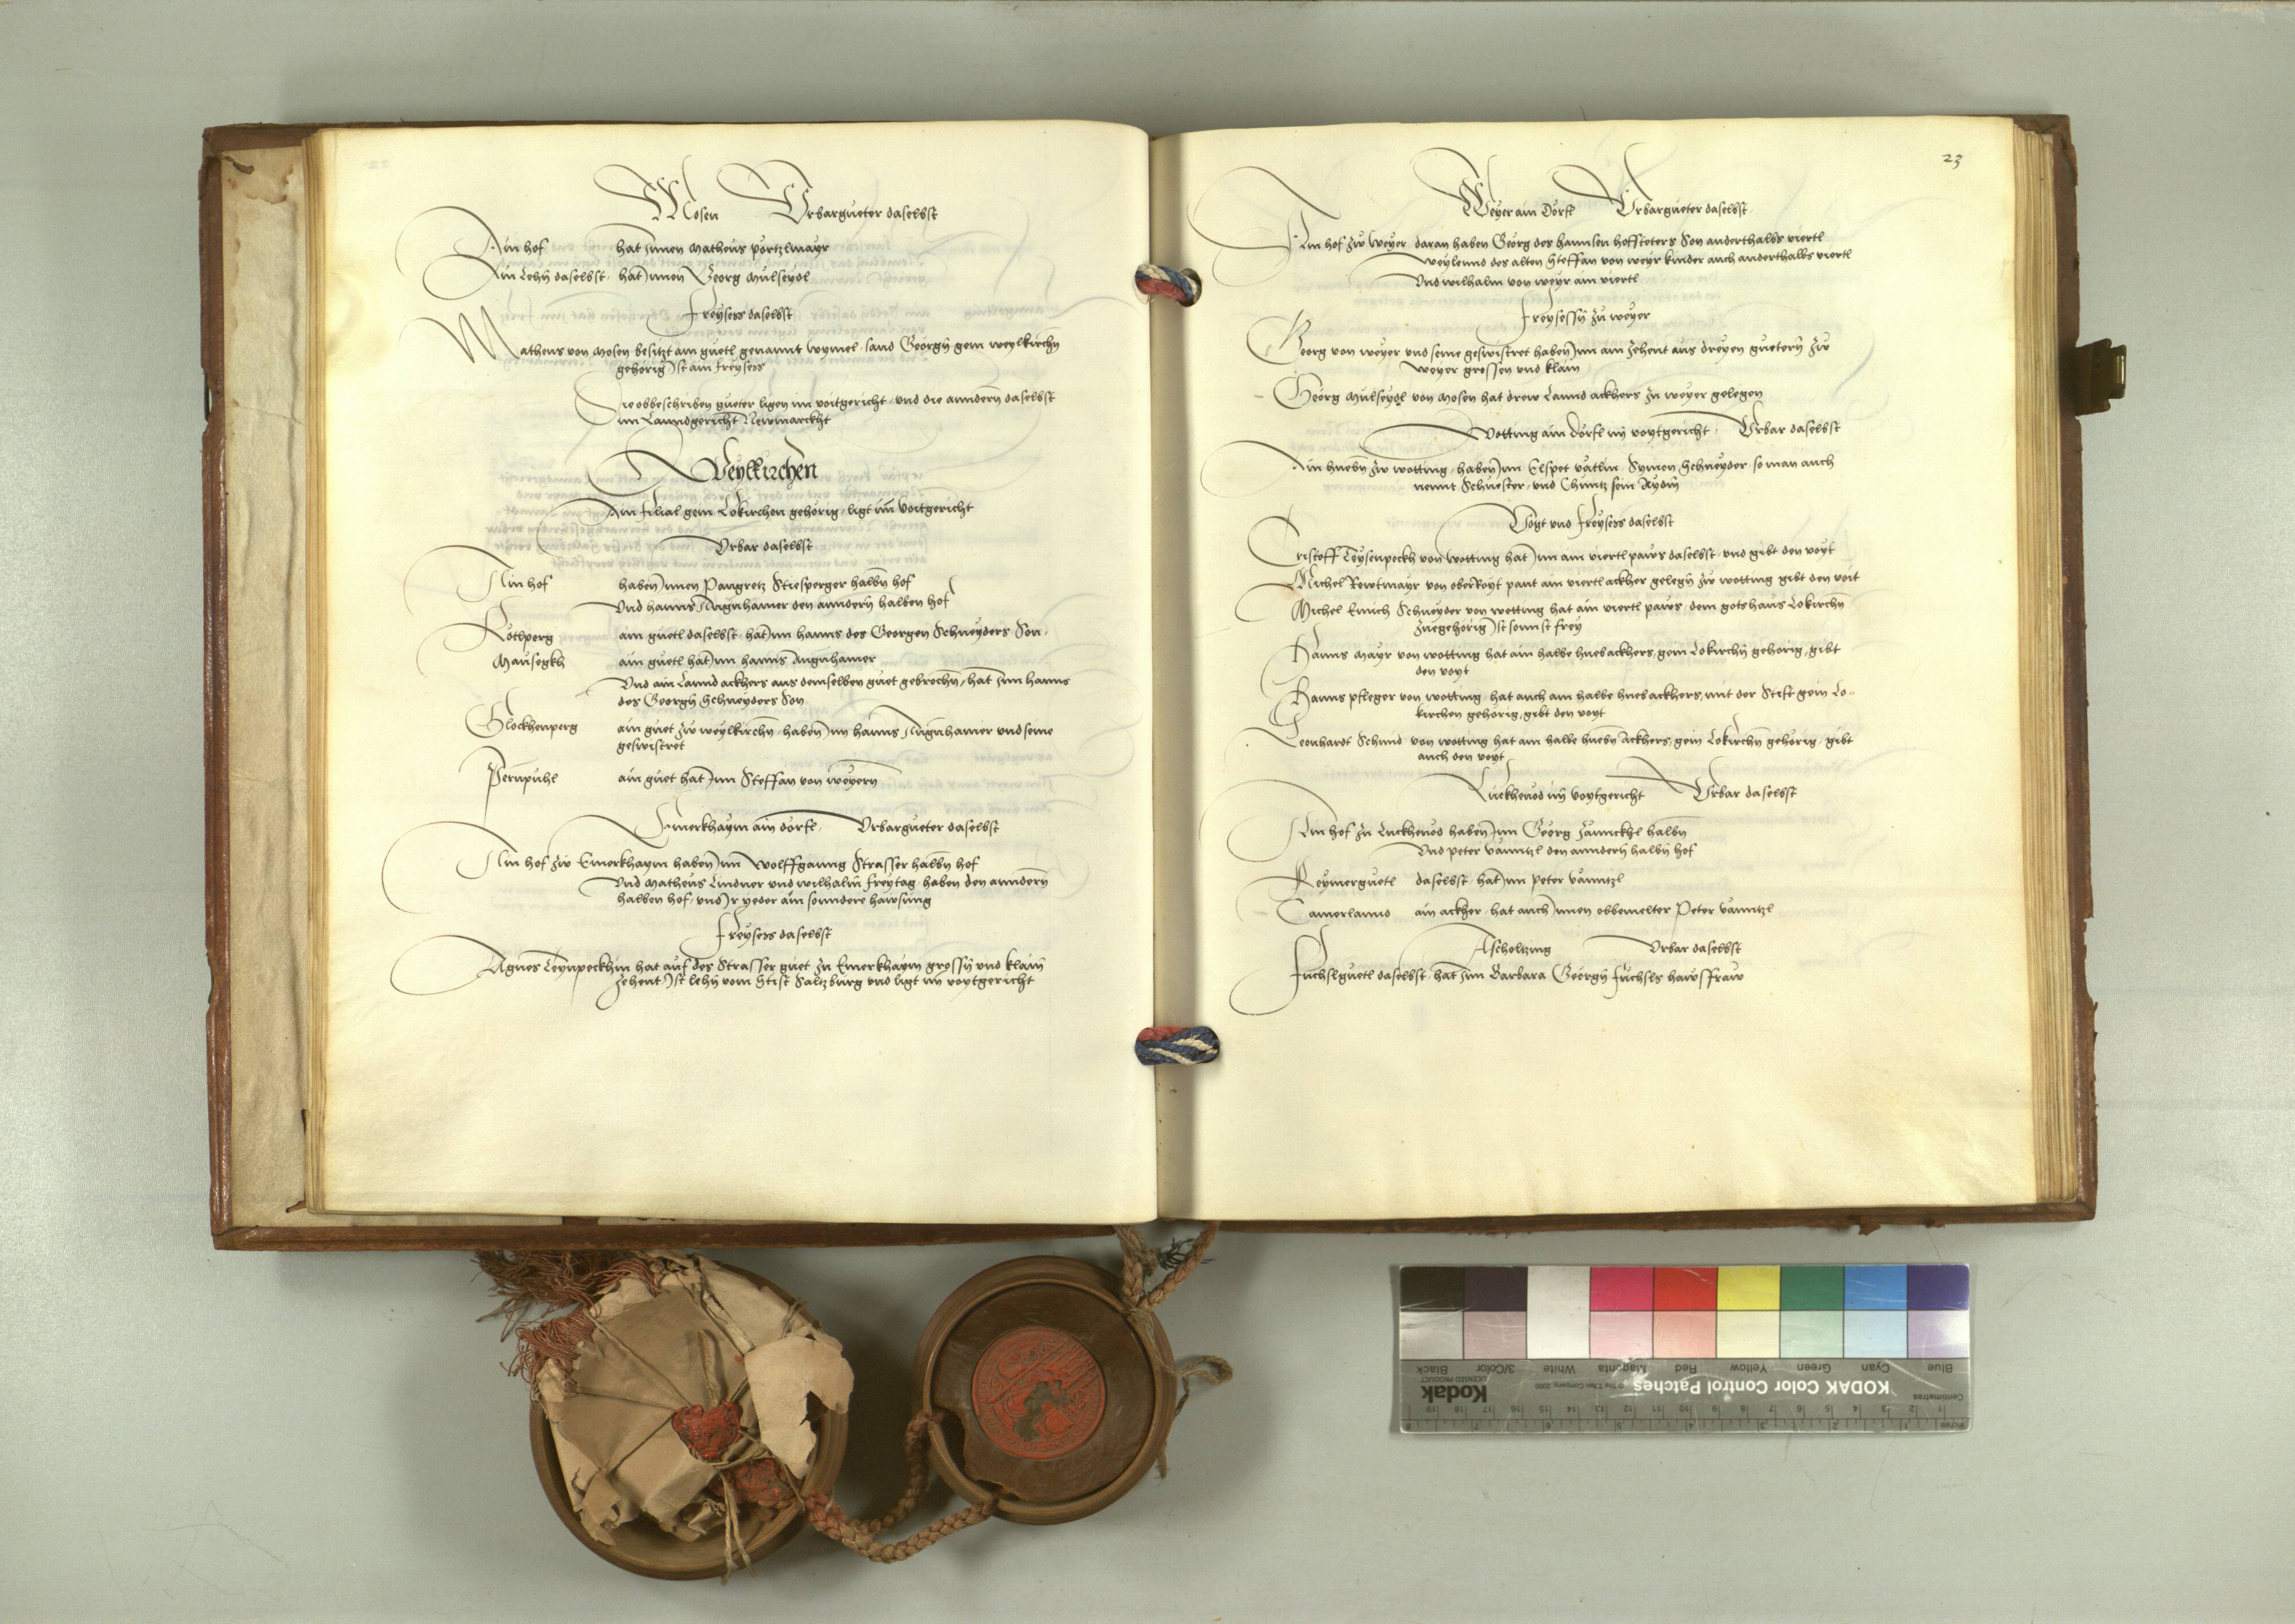 Mosen Urbargueter daselbst
Ain hof hat Innen Matheus portzlmayr
Ain Lehn daselbst hat Innen Georg Mulseydl
Freysess daselbst
Matheus von Mosen besitzt ain guetl genannt wymel sand Georgn gein weylkirchn
gehorig Ist ain freysess
Die obbeschriben gueter ligen im voitgericht und die anndern daselbst
im Lanndgericht Newmarckht
Weylkirchen
Ain filial gein Lokirchen gehorig ligt im Voitgericht
Urbar daselbst
Ain hof haben Innen Pangretz Stiesperger halbn hof
Und hanns Aignhamer den anndern halben hof
Rotlperg ain guetl daselbst hat Inn hanns des Georgen Schneyders Son
Mausegkh ain guetl hat Inn hanns Aignhamer
Und ain Lannd ackhers aus demselben guet gebrochn hat Inn hanns
des Georgn Schneyders Son
Glockhenperg ain guet zw weylkirchn haben Inn hanns Aignhamer und seine
geswistret
Pernpuhl ain guet hat Inn Steffan von weyern
Emerkhaym ain dorfl Urbargueter daselbst
Ain hof zw Emerkhaym haben Inn Wolffganng Strasser halbn hof
Und Matheus Lindner und wilhalm freytag haben den anndern
halben hof und Ir yeder ain sonndere hawsung
Freysess daselbst
Agnes Leynpeckhin hat auf des Strasser guet zu Emerkhaym grossn und klain
zehent Ist lehn vom Stift Saltzburg und ligt im voytgericht
23
Weyer ain Dorfl Urbargueter daselbst
Ain hof zw Weyer daran haben Georg des hannsen hofsteters Son anderthalbs viertl
Weylennd des alten Steffan von weyr kinder auch anderthalbs viertl
Und wilhalm von weyr ain viertl
Freysessn zu weyer
Georg von weyer und seine geswistret haben Inn ain zehent aus dreyen guetern zw
Weyer grossen und klain
Georg Mulseydl von Mosen hat drew Lannd ackhers zu weyer gelegen
Wotting ain dorfl im voytgericht Urbar daselbst
Ain huebn zw wotting haben Inn Elspet vatlin Symon Schneyder so man auch
nennt Schuester und Chuntz sein Aydm
Vogt und freysess daselbst
Cristoff Leysenpeckh von wotting hat Inn ain viertl paws daselbst und gibt den voyt
Michel Rewtmayr von oberkoyt pant ain viertl ackher gelegn zw wotting gibt den voit
Michel Emich Schneyder von wotting hat ain viertl paws dem gotshaus Lokirchn
zuegehorig Ist sonnst frey
Hanns Mayr von wotting hat ain halbe hueb ackhers gein Lokirchn gehorig gibt
den voyt
Hanns pfleger von wotting hat auch ain halbe hueb ackhers mit der Stift gein Lo-
kirchen gehorig gibt den voyt
Leonhardt Schmid von wotting hat ain halbe huebn Ackhers gein Lokirchn gehorig gibt
auch den voyt
Luckhenod im voytgericht Urbar daselbst
Ain hof zu Luckhenod haben Inn Georg zannckhl halbn
Und peter vanntzl den anndern halbn hof
Reymerguetl daselbst hat Inn peter vanntzl
Camerlannd ain ackher hat auch Innen obbemelter Peter vanntzl
Ascholtzing Urbar daselbst
Fuchslguetl daselbst hat Inn Barbara Georgn fuchsls hawsfraw
KODAK Color Control Patches
Kodak
LICENSED PRODUCT
Blue Cyan Green Yellow Red Magenta White 3/Color Black
Centimetres
Inches